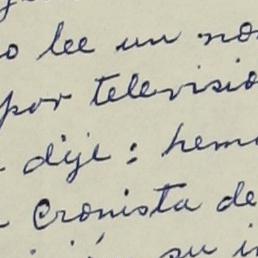 o lee un no
por televisio
dije: hemo
cronista de
su i